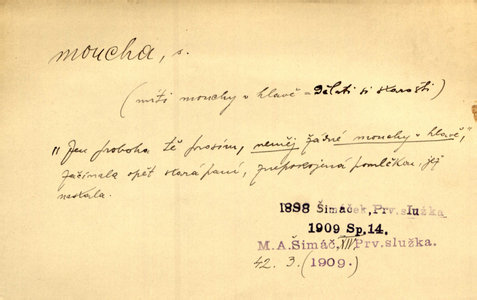 moucha, s.
(míti mouchy v hlavě = dělati si starosti)
"Jen proboha tě prosím, neměj žádné mouchy v hlavě,"
začínala opět stará paní, znepokojená pomlčkou, již
neskala.
1898 Šimáček, Prv. služka
1909 Sp. 14.
M. A. Šimáč, XIV, Prv. služka.
42. 3. (1909.)